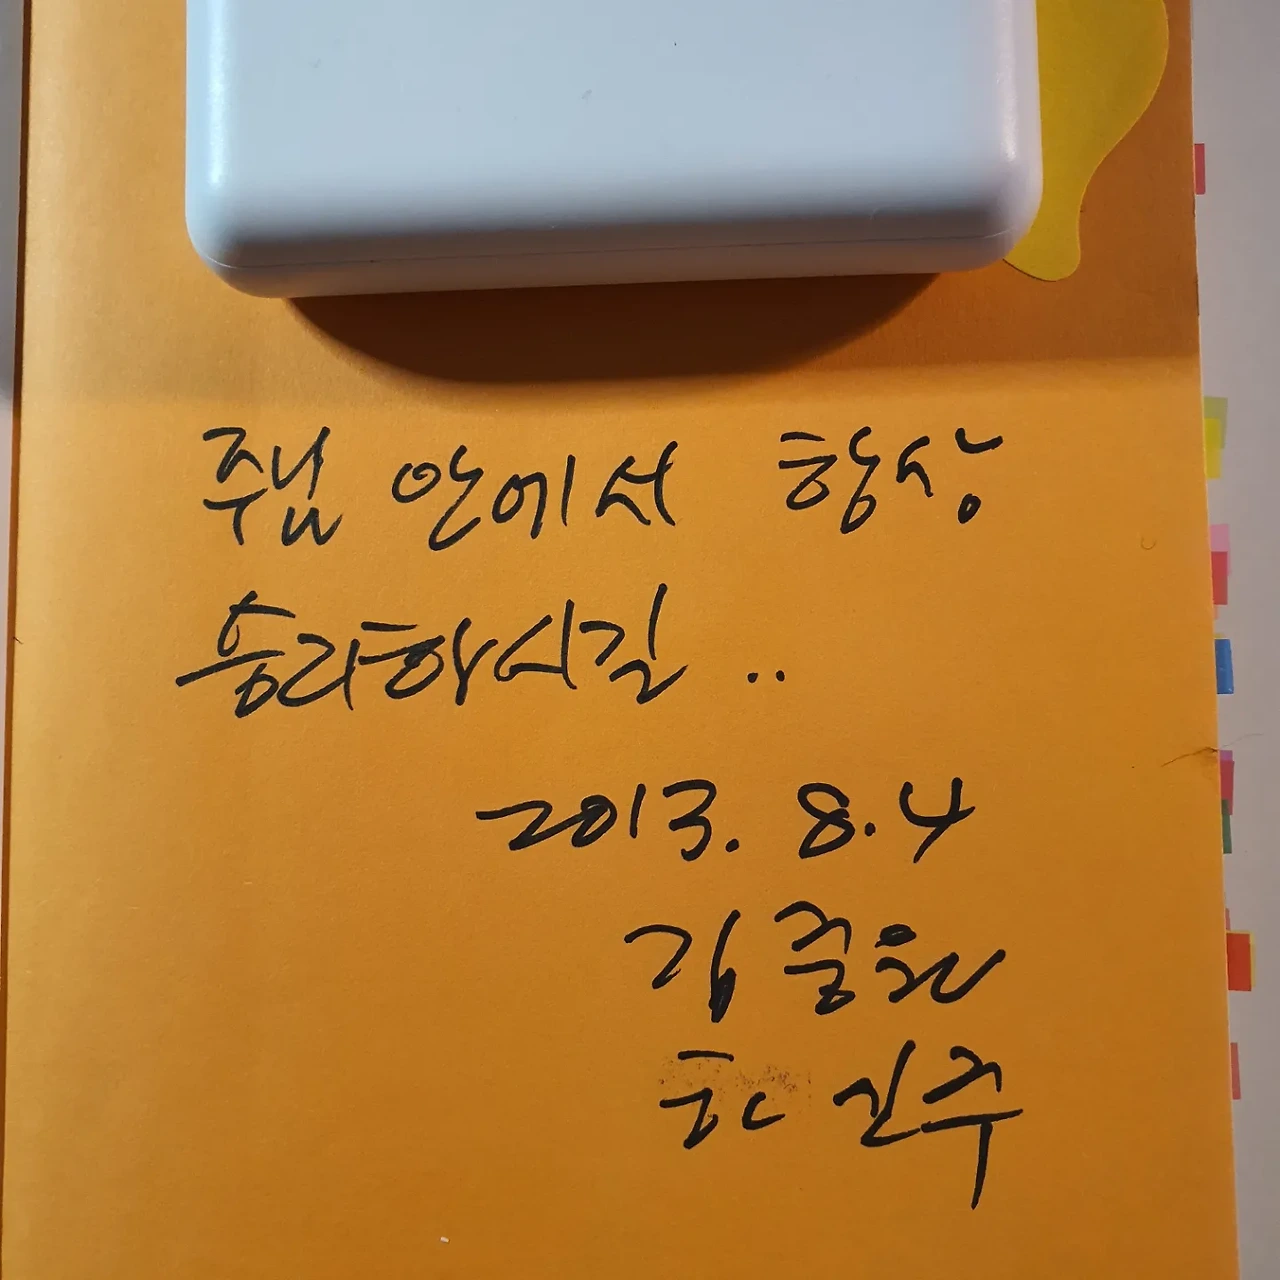 주님 안에서 항상
승리하시길 ..
2013. 8.4
김종원
진주